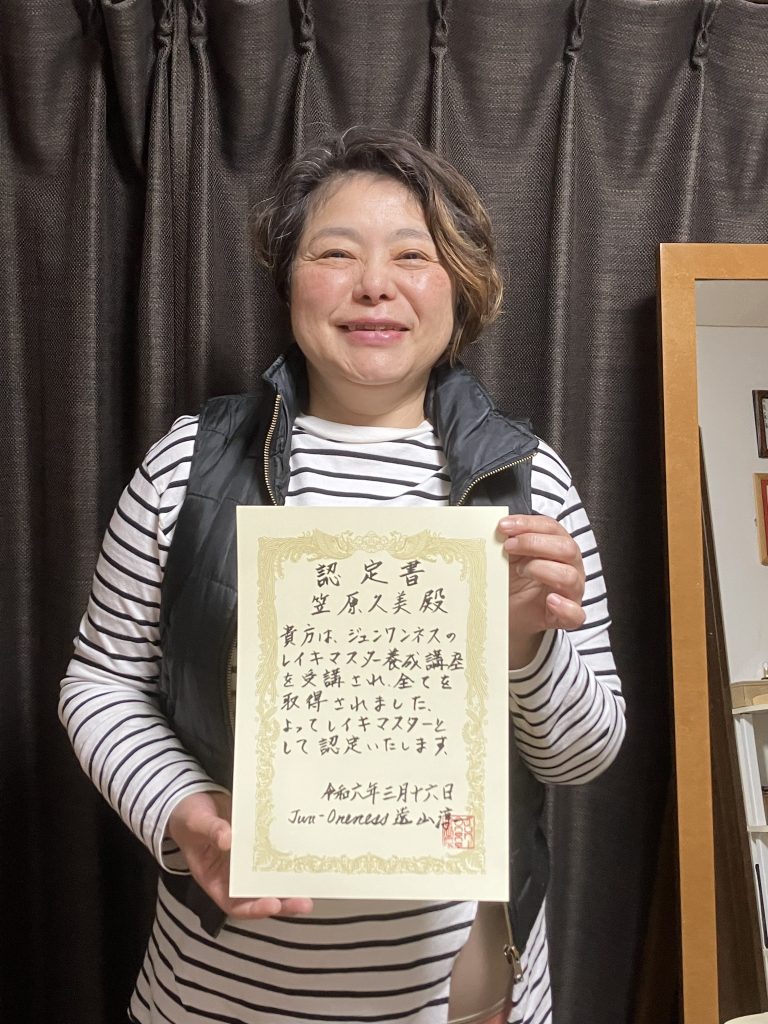 認定書
笠原久美殿
貴方は、ジュンワンネスの
レイキマスター養成講座
を受講され、全てを
取得されました、
よってレイキマスターと
して認定いたします。
令和六年三月十六日
Jun-Oneness 遠山淳一